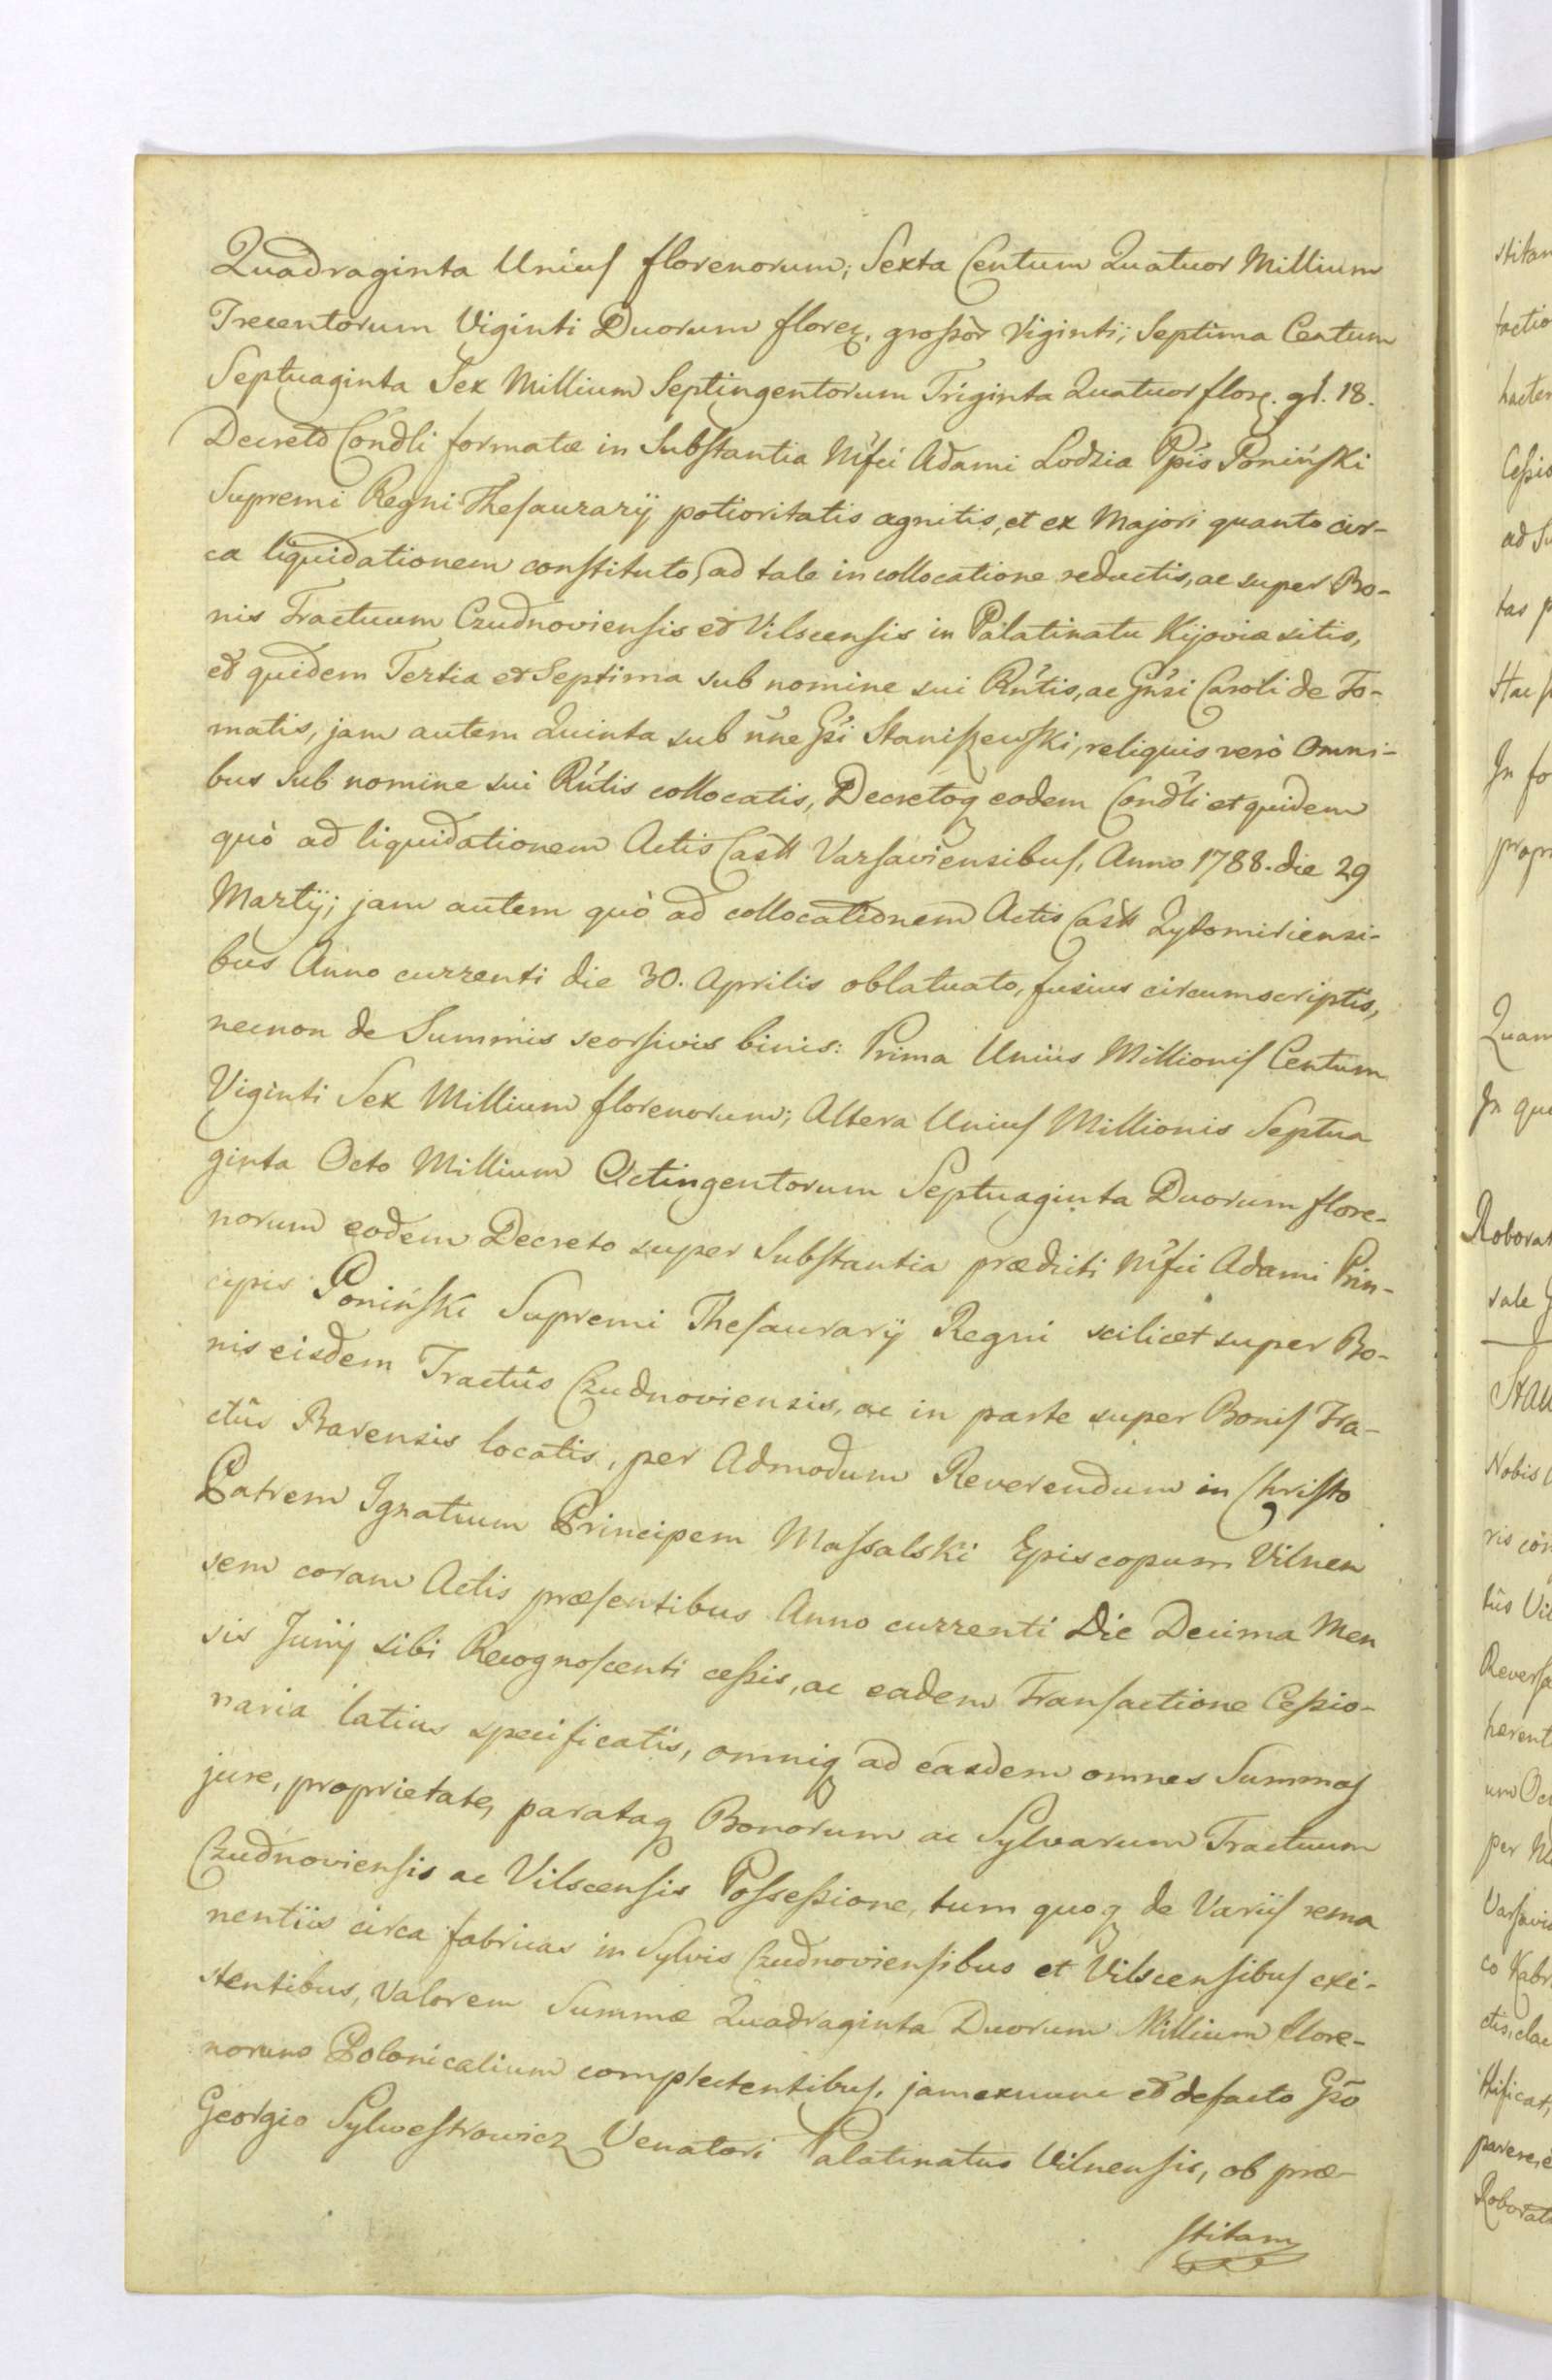 Quadraginta Unius florenorum; Sexta Centum Quatuor Millium
Trecentorum Viginti Duorum floreɳ. grossor Viginti; Septima Centum
Septuaginta Sex Millium Septingentorum Triginta Quatuor flor. gl. 18.
Decreto Condli formatæ in Substantia Mfci Adami Lodzia Ppis Poniński
Supremi Regni Thesaurarij potioritatis agnitis, et ex Majori quanto cir-
ca liquidationem constituto, ad tale in collocatione reductis, ac super Bo-
nis Tractuum Czudnoviensis et Vilscensis in Palatinatu Kijoviæ sitis,
et quidem Tertia et Septima sub nomine sui Rntis, ac Gnsi Caroli de To-
matis, jam autem Quinta sub nne Gsi Staniszewski, reliquis verò Omni-
bus sub nomine sui Rntis collocatis, Decretoq eodem Condli et quidem
quò ad liquidationem Actis Castt Varsaviensibus, Anno 1788. die 29
Martij; jam autem quò ad collocationem Actis Castt Zytomiriensi-
bus Anno currenti die 30. Aprilis oblatuato, fusius circumscriptis,
necnon de Summis seorsivis binis: Prima Unius Millionis Centum
Viginti Sex Millium florenorum; Altera Unius Millionis Septua
ginta Octo Millium Octingentorum Septuaginta Duorum flore-
norum eodem Decreto super Substantia prædicti Mfci Adami Prin-
cipis Poniński Supremi Thesaurarij Regni scilicet super Bo-
nis eisdem Tractûs Czudnoviensis, ac in parte super Bonis Tra-
ctûs Barensis locatis, per Admodum Reverendum in Christo
Patrem Ignatium Principem Massalski Episcopum Vilnen
sem coram Actis præsentibus Anno currenti Die Decima Men
sis Junij sibi Recognoscenti cessis, ac eadem Transactione Cessio-
naria latius specificatis, omniq ad easdem omnes Summas
jure, proprietate, parataq Bonorum ac Sylvarum Tractuum
Czudnoviensis ac Vilscensis Possessione, tum quoq de Variis rema
nentiis circa fabricas in Sylvis Czudnoviensibus et Vilscensibus exi-
stentibus, Valorem Summæ Quadraginta Duorum Millium flore-
norum Polonicalium complectentibus, jam exnunc et defacto Gso
Georgio Sylwestrowicz Venatori Palatinatus Vilnensis, ob præ-
stitam